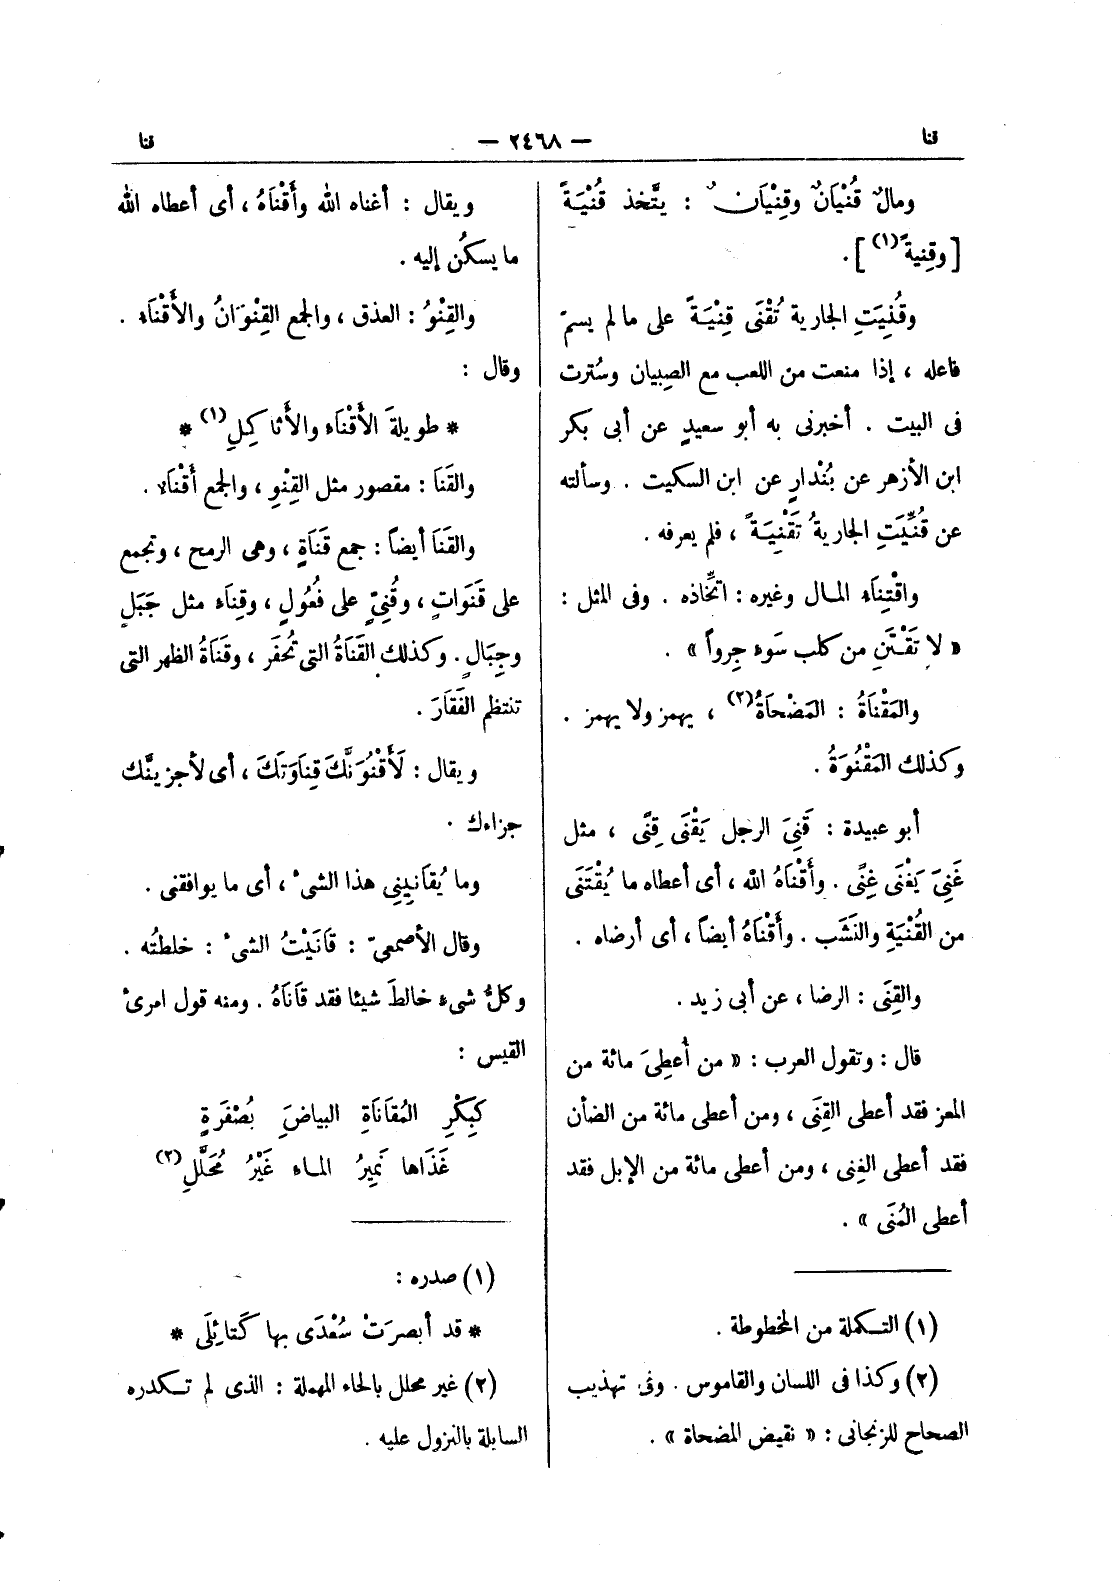 قنا
— ٢٤٦٨ —
قنا
ومالٌ قُنْيَانٌ وقِنْيَان ٌ : يتَّخذ قُنْيَةً
[ وقِنيةً (١) ] .
وقُنِيَتِ الجارية تُقْنَى قِنْيَةً على ما لم يسمّ
فاعله ، إذا منعت من اللعب مع الصِبيان وسُترت
فى البيت . أخبرنى به أبو سعيدٍ عن أبى بكر
ابن الأزهر عن بُنْدارٍ عن ابن السكيت . وسألته
عن قُنِّيَتِ الجاريةُ تَقْنِيَةً ، فلم يعرفه .
واقْتِنَاء المال وغيره : اتِّخاذه . وفى المثل :
« لا تَقْتَنِ من كلب سَوء جِرواً » .
والمَقْنَاةُ : المَضْحَاةُ (٢) ، يهمز ولا يهمز .
وكذلك المَقْنُوَةُ .
أبو عبيدة : قَنِىَ الرجل يَقْنَى قِنًى ، مثل
غَنِىَ يَغْنَى غِنًى . وأَقْنَاهُ الله ، أى أعطاه ما يُقْتَنَى
من القُنْيَةِ والنَشَب . وأَقْنَاهُ أيضاً ، أى أرضاه .
والقِنَى : الرضا ، عن أبى زيد .
قال : وتقول العرب : « من أُعطِىَ مائة من
المعز فقد أعطى القِنَى ، ومن أعطى مائة من الضأن
فقد أعطى الغِنى ، ومن أعطى مائة من الإبل فقد
أعطى المُنَى » .
(١) التكملة من المخطوطة .
(٢) وكذا فى اللسان والقاموس . وفى تهذيب
الصحاح للزنجانى : « نقيض المضحاة » .
ويقال : أغناه الله وأَقْنَاهُ ، أى أعطاه الله
ما يسكُن إليه .
والقِنْوُ : العذق ، والجمع القِنْوَانُ والأَقْنَاء .
وقال :
* طويلةَ الأَقْنَاء والأَثاكِلِ (١) *
والقَنَا : مقصور مثل القِنْوِ ، والجمع أَقْنَاء .
والقَنَا أيضاً : جمع قَنَاةٍ ، وهى الرمح ، وتجمع
على قَنَوَاتٍ ، وقُنِىّ على فُعُولٍ ، وقِنَاء مثل جَبَلٍ
وجِبَالٍ . وكذلك القَنَاةُ التى تُحفَر ، وقَنَاةُ الظهر التى
تنتظم الفَقَارَ .
ويقال : لَأَقْنُوَنَّكَ قِنَاوَتَكَ ، أى لأجزينَّك
جزاءك .
وما يُقَانِينِى هذا الشىء ، أى ما يوافقنى .
وقال الأصمعىّ : قَانَيْتُ الشىء : خلطتُه .
وكلُّ شىء خالطَ شيئا فقد قَانَاهُ . ومنه قول امرئ
القيس :
كبِكْرِ المُقَانَاةِ البياضَِ بصُفْرَةٍ
غَذَاها نَمِيرُ الماء غَيْرُ مُحَلَّلِ (٢)
(١) صدره :
* قد أبصرَتْ سُعْدَى بها كَتَائِلَى *
(٢) غير محلل بالحاء المهملة : الذى لم تكدره
السابلة بالنزول عليه .